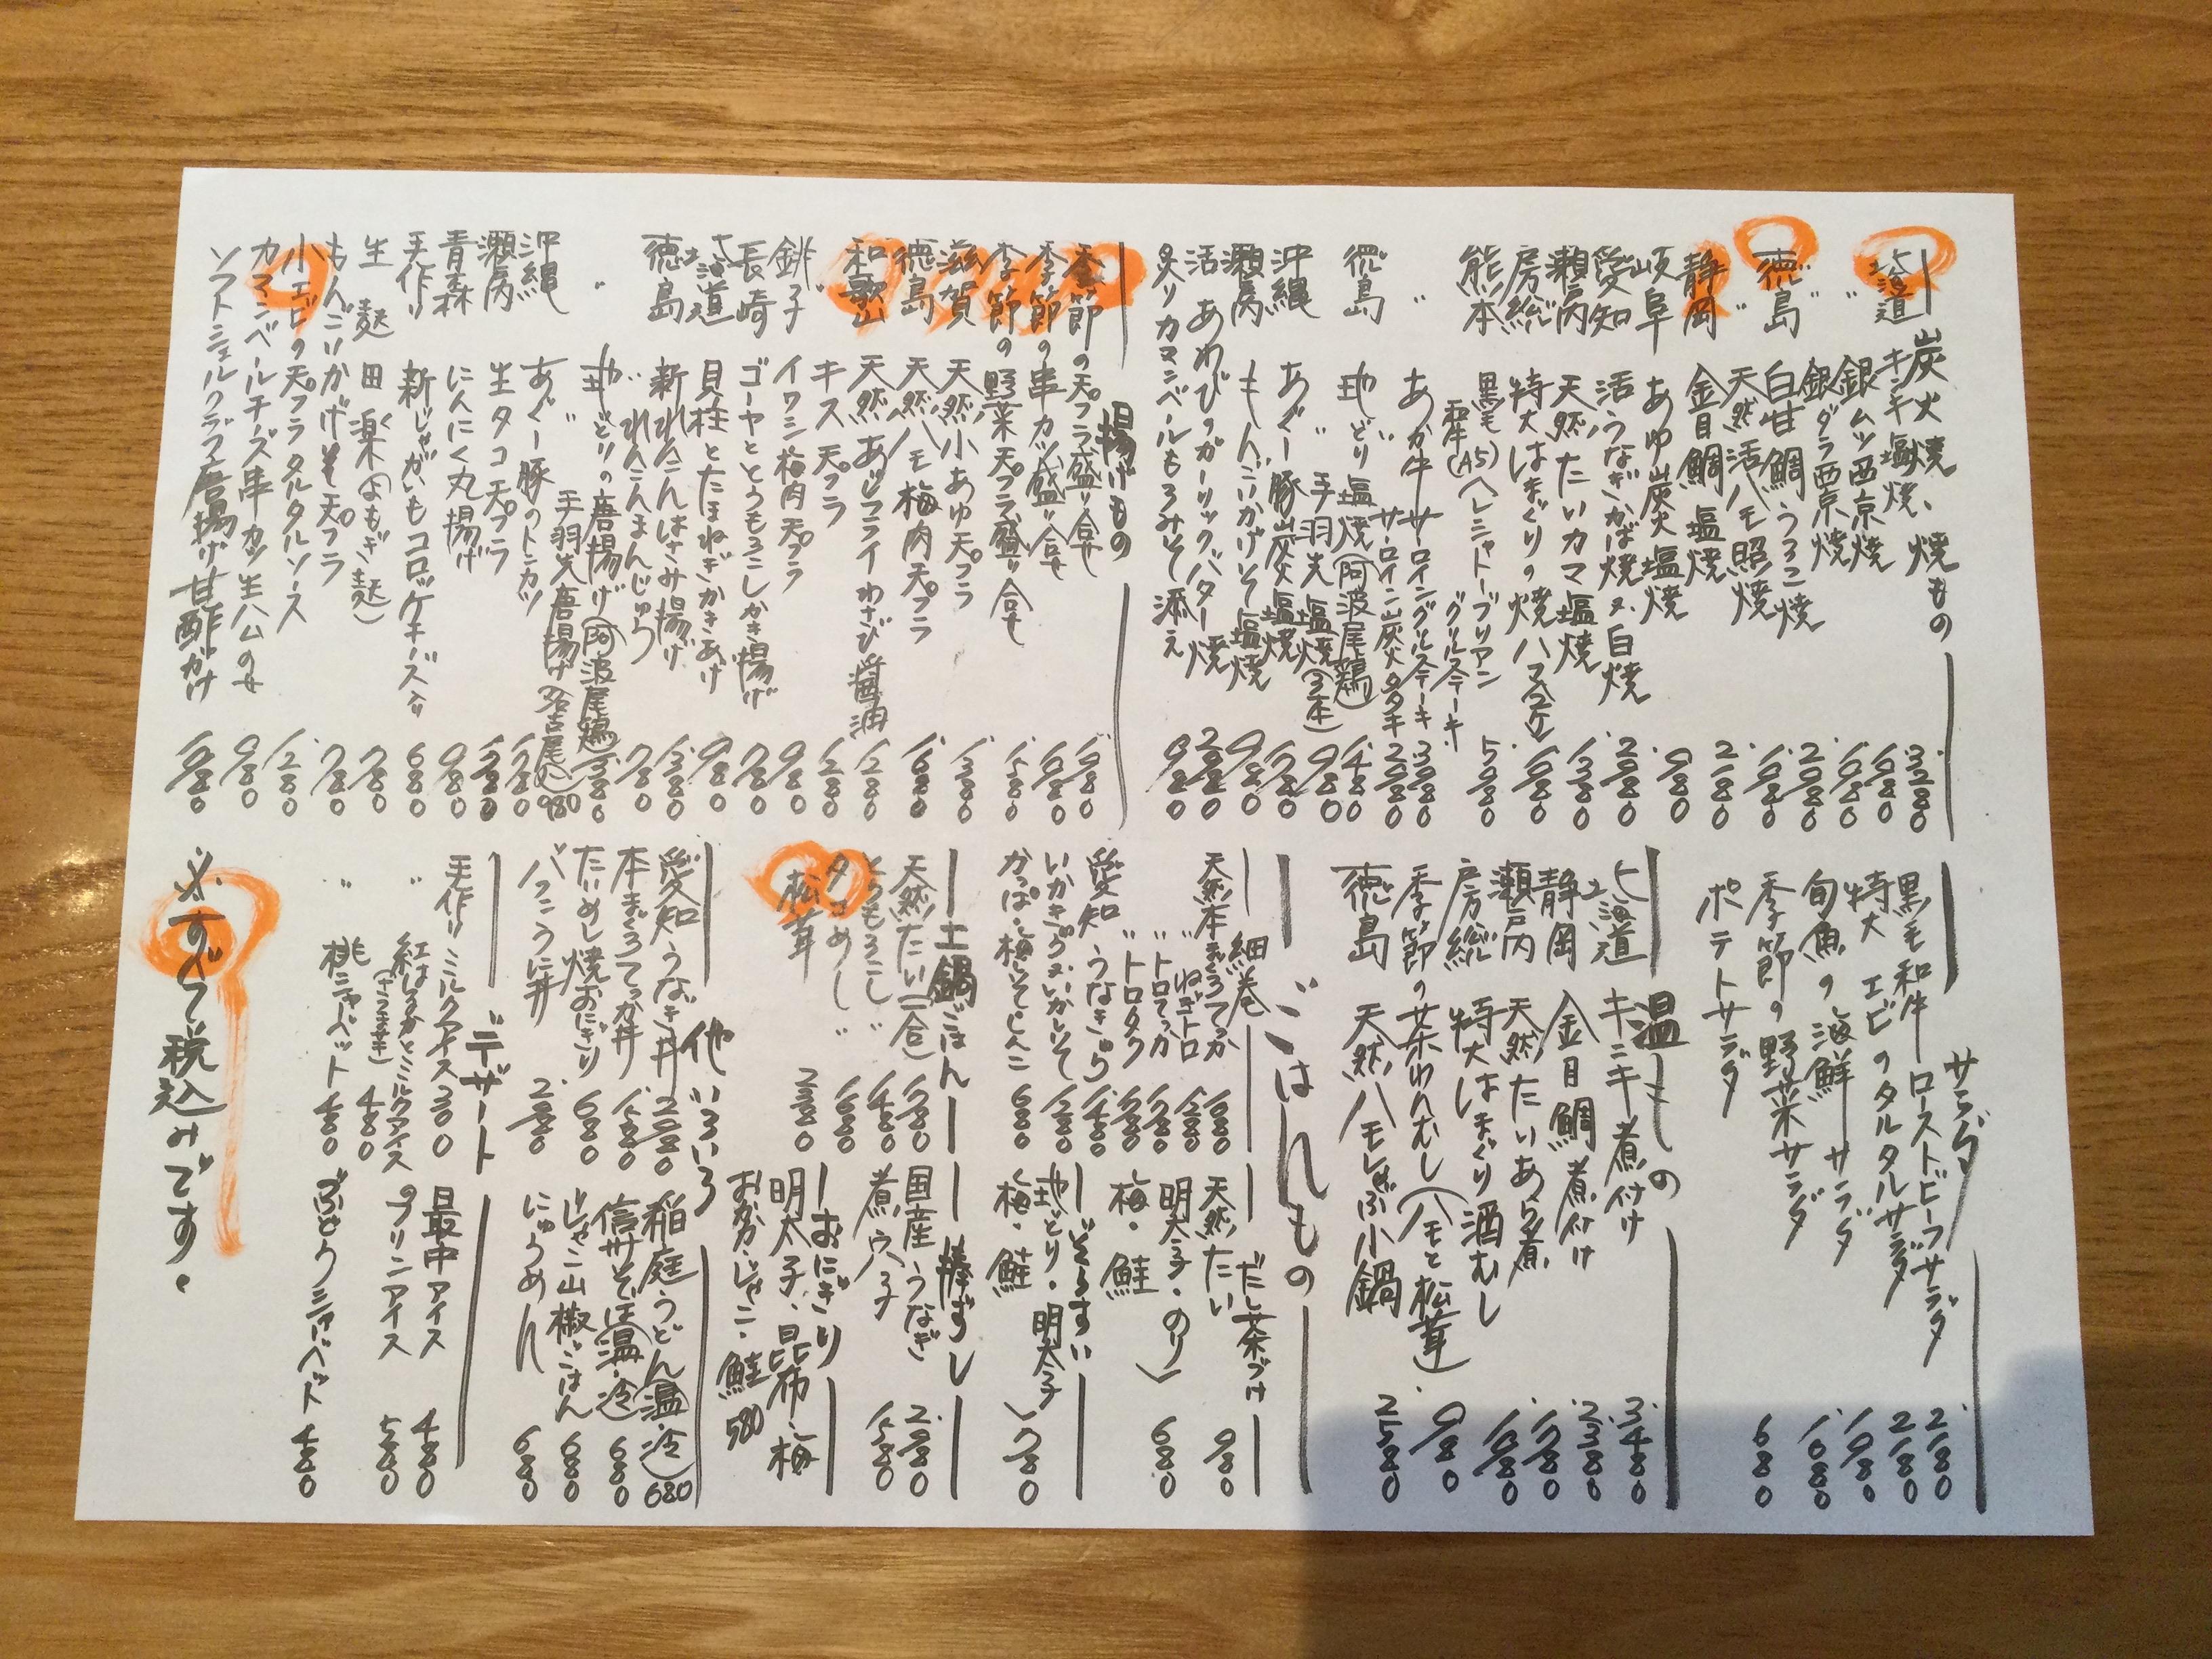 炭火焼、焼もの
北海道 キンキ塩焼 3.280
〃 銀ムツ西京焼 1.980
銀ダラ西京焼 1.980
徳島 白甘鯛うろこ焼 2.980
〃 天然活ハモ照焼 1.980
静岡 金目鯛塩焼 2.180
岐阜 あゆ炭火塩焼 980
愛知 活うなぎかば焼又、白焼 2.980
瀬戸内 天然たいカマ塩焼 1.380
房総 特大はまぐりの焼ハマ2ケ 1.980
熊本 黒毛和牛(A5)ヘレシャトーブリアングリルステーキ 5.980
〃 あか牛サーロイングリルステーキ 3.980
サーロイン炭火タタキ 2.980
徳島 地どり塩焼(阿波尾鶏) 1.480
〃 〃 手羽先塩焼(3本) 980
沖縄 あぐー豚炭火塩焼 1.780
瀬戸内 もんごいかげそ塩焼 980
活あわびのガーリックバター焼 2.980
炙りカマンベールもろみそ添え 980
揚げもの
季節の天プラ盛り合せ 1.980
季節の串カツ盛り合せ 1.980
季節の野菜天プラ盛り合せ 1.580
滋賀 天然小あゆ天プラ 1.380
徳島 天然ハモ梅肉天プラ 1.680
和歌山 天然あじフライわさび醤油 1.280
銚子 キス天プラ 1.280
〃 イワシ梅肉天プラ 980
長崎 ゴーヤととうもろこしかき揚げ 780
北海道 貝柱とたまねぎかきあげ 980
徳島 新れんこんはさみ揚げ 1.380
〃 れんこんまんじゅう 780
〃 地どりの唐揚げ(阿波尾鶏) 1.380
〃 手羽先唐揚げ 980
沖縄 あぐー豚のトンカツ 1.780
瀬戸内 生タコ天プラ 1.380
青森 にんにく丸揚げ 980
手作り 新じゃがいもコロッケチーズ入り 680
生麩田楽(よもぎ麩) 780
もんごいかげそ天プラ 780
小エビの天プラタルタルソース 1.280
カマンベールチーズ串カツ生ハムのせ 980
ソフトシェルクラブ唐揚げ甘酢がけ 1.980
サラダ
黒毛和牛ローストビーフサラダ 2.180
特大エビのタルタルサラダ 2.180
旬魚の海鮮サラダ 1.980
季節の野菜サラダ 1.080
ポテトサラダ 680
温もの
北海道 キンキ煮付け 3.480
静岡 金目鯛煮付け 2.380
瀬戸内 天然たいあら煮 1.780
房総 特大はまぐり酒むし 1.980
季節の茶わんむし(ハモと松茸) 980
徳島 天然ハモしゃぶ小鍋 2.580
ごはんもの
細巻
天然本まぐろてっか 1.680
〃 ねぎトロ 1.280
〃 トロてっか 1.780
〃 トロタク
愛知 うなきゅう 1.480
いかきゅう又、いかしそ 1.280
かっぱ・梅しそ・しんこ 680
だし茶づけ
天然たい 980
明太子・のり
梅・鮭 680
ぞうすい
地どり・明太子
梅・鮭 780
土鍋ごはん
天然たい(一合) 1.780
とうもろこし〃 1.480
タコめし〃 1.680
松茸 2.980
棒ずし
国産うなぎ 2.980
煮穴子 1.580
おにぎり
明太子、昆布、梅
おかか・じゃこ・鮭 580
他いろいろ
愛知うなぎ丼 2.980
本まぐろてっか丼 1.580
たいめし焼おにぎり 680
バフンうに丼 2.980
稲庭うどん(温・冷) 680
信州そば(温・冷) 680
じゃこ山椒ごはん 680
にゅうめん 680
デザート
手作りミルクアイス 300
〃 紅はるかとミルクアイス(さつま芋) 480
〃 桃シャーベット 480
最中アイス 480
プリンアイス 580
ぶどうシャーベット 480
※すべて税込みです。